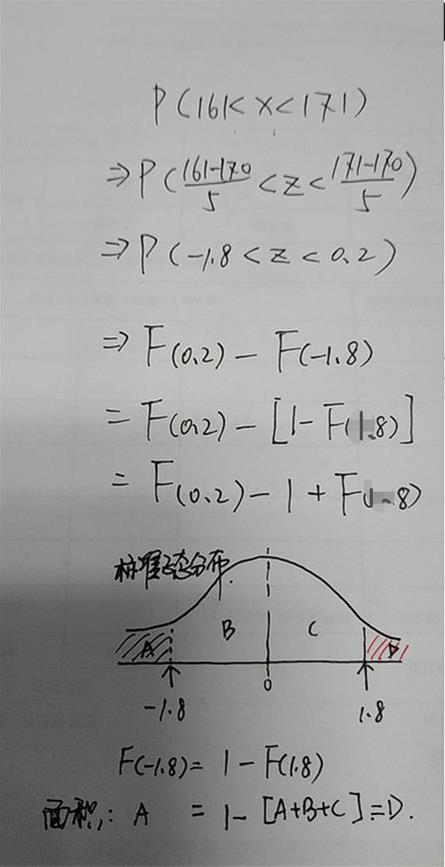 P(161<x<171)
⇒P(161-170/5<z<171-170/5)
⇒P(-1.8<z<0.2)
⇒F(0.2)-F(-1.8)
=F(0.2)-[1-F(1.8)]
=F(0.2)-1+F(1.8)
标准正态分布.
A B C D
-1.8 0 1.8
F(-1.8)=1-F(1.8)
面积,: A = 1-[A+B+C]=D.